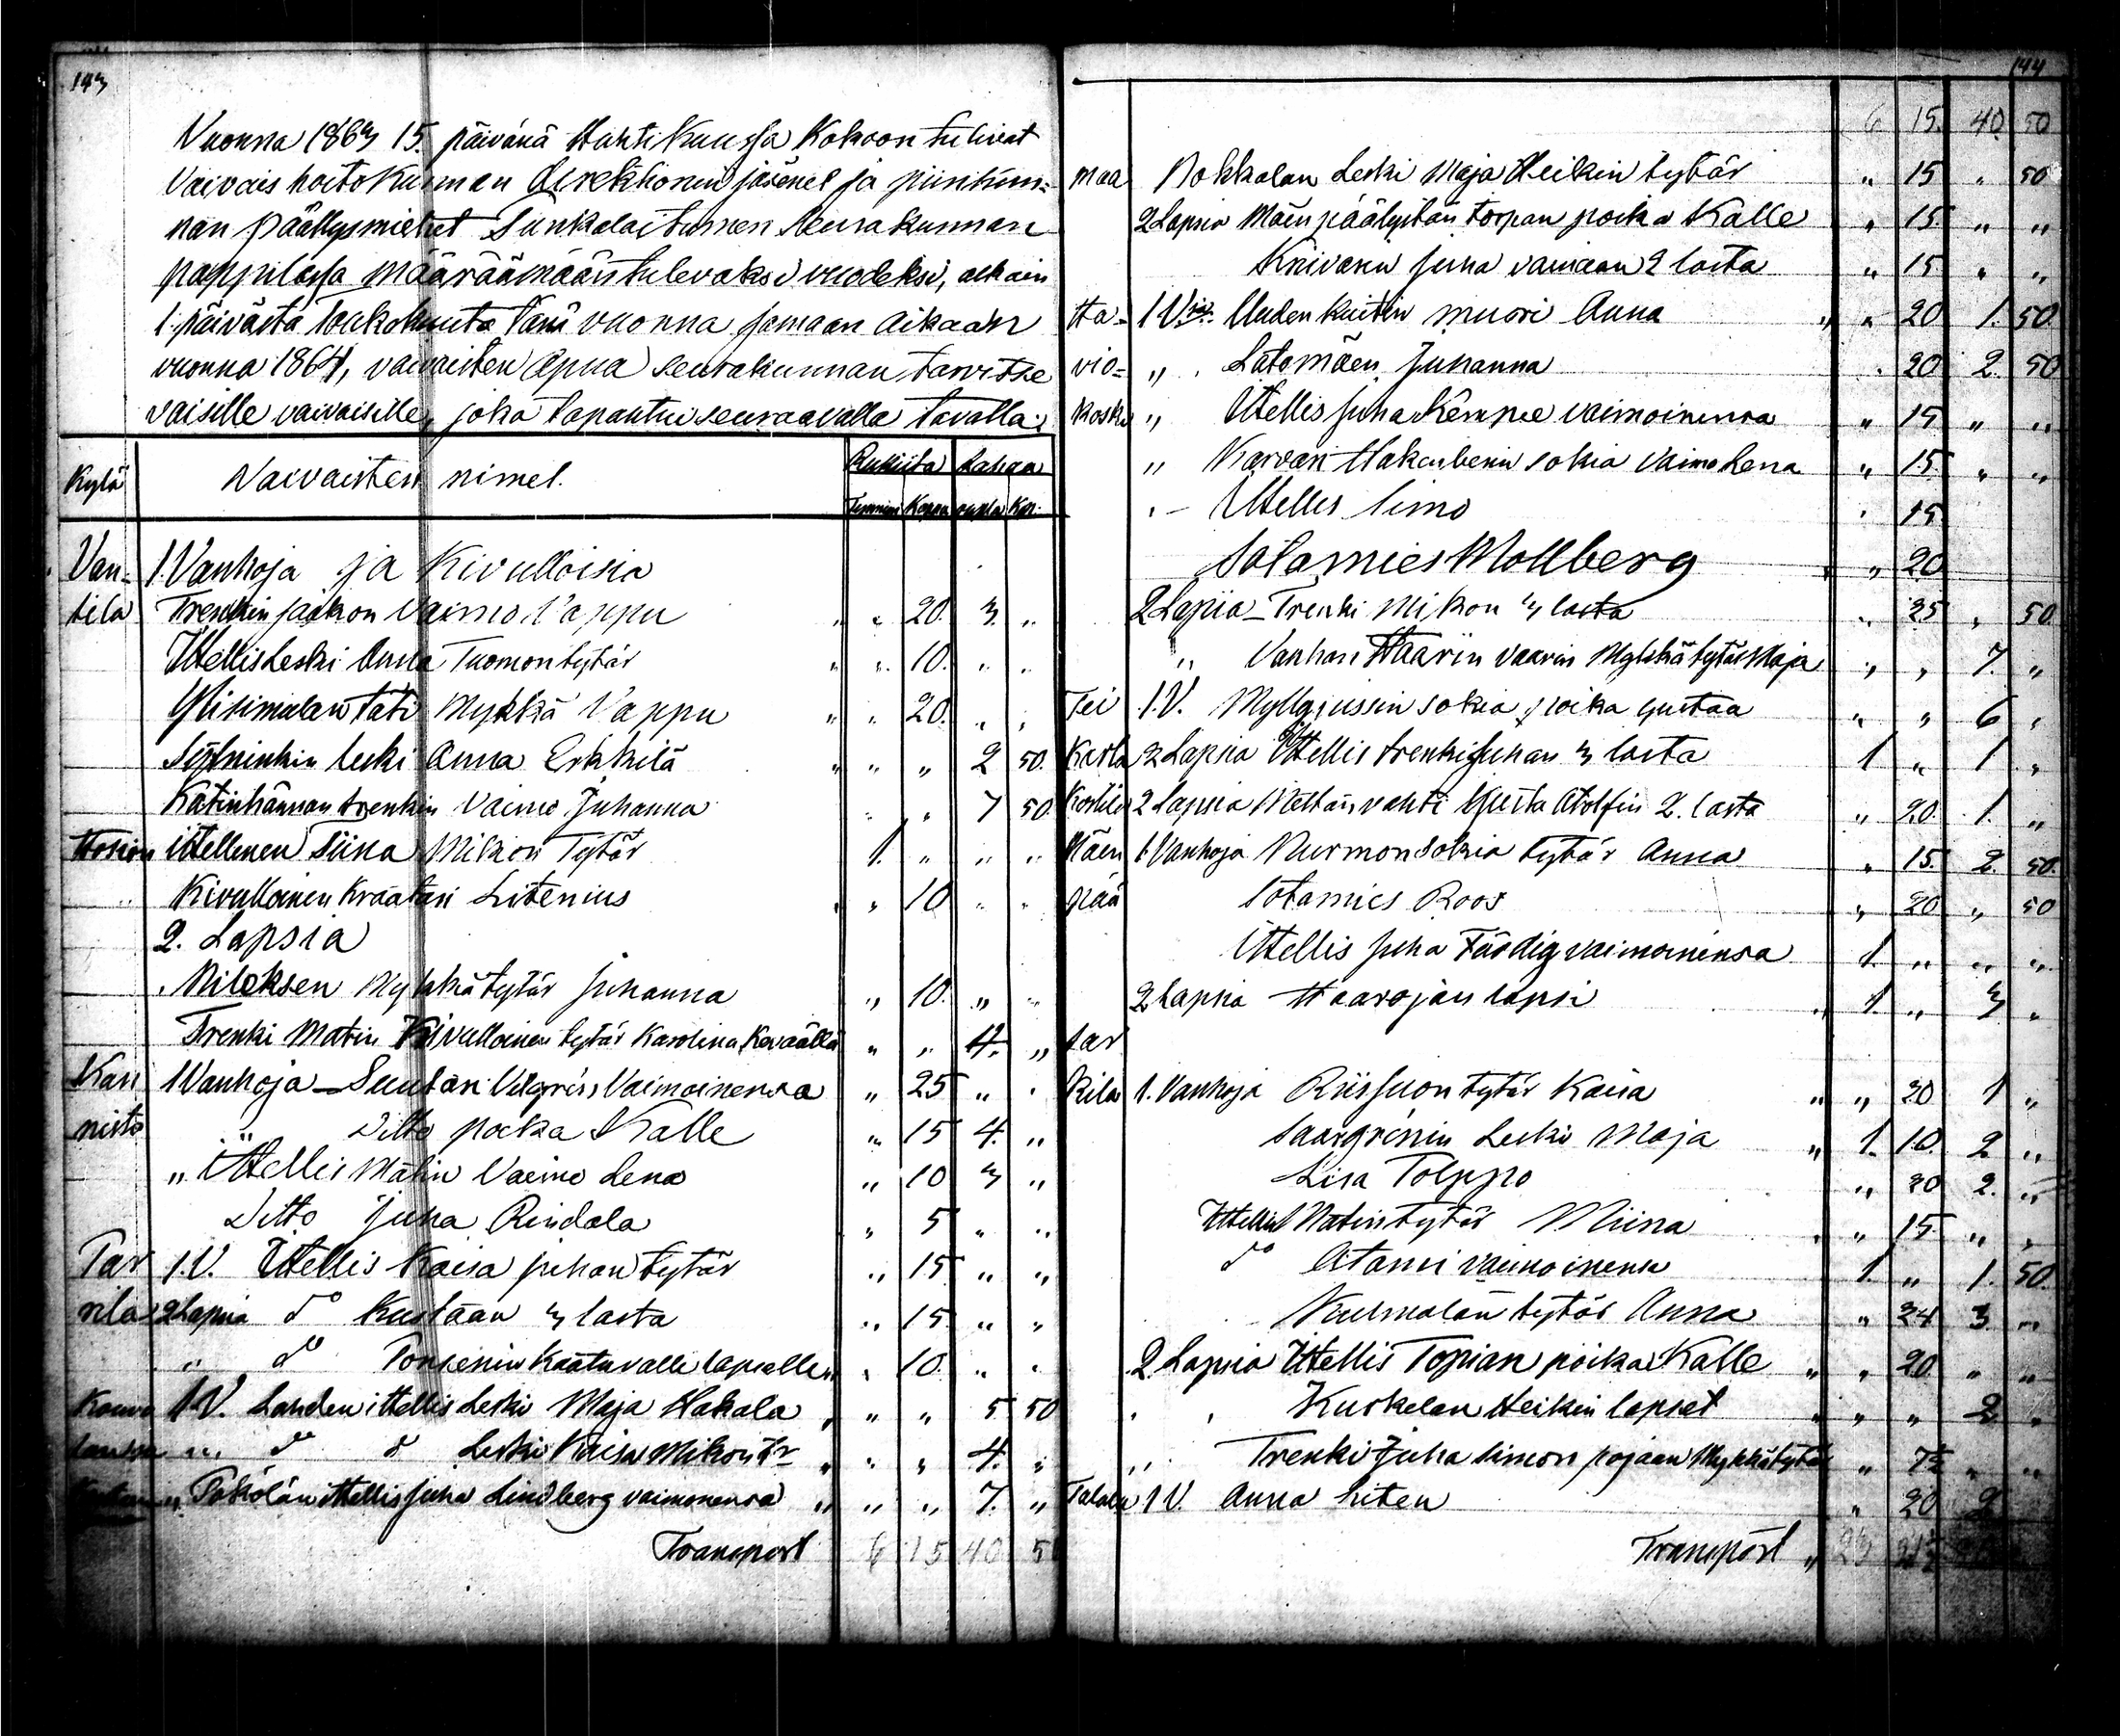 143
Vuonna 1863 15. päivänä Huhti Kuussa Kokoon tulivat
Vaivais hoitokunnan direktionin jäsenet ja piirikun=
nan päällysmiehet Punkalaitumen Seurakunnan
pappilassa määräämään tulevaksi vuodeksi, alkain
1. päivästä toukokuuta tänä vuonna samaan aikaan
vuonna 1864, vaivaisten apua seurakunnan tarvitse
vaisille vaivaisille, joka tapahtui seuraavalla tavalla:
Kylä Vaivaisten nimet. Rukiita Rahaa
Tynnöri Kappa rupla Kop.
Van= 1. Vanhoja ja Kivulloisia
tila Trenkin jaakon Vaimo Vappu „ „ 20. 3 „
Ittellis Leski Anna Tuomontytär „ „ 10. „ „
Ylisimulan täti Mykkä Vappu „ „ 20. „ „
leski Anna Erkkilä „ „ „ 2 50.
Katinhännan trenkin Vaimo Juhanna „ „ 7 50
ittellinen Siina Mikon Tytär 1. „ „ „
„ Kivulloinen Kräätäri Litenius „ 10 „ „
2. Lapsia
Mykkä tytär Juhanna „ 10. „ „
Trenki Matin Kivulloinen tytär Karolina Keväällä „ „ 4. „
Kan 1 Vanhoja – Suutari Vaimoinensa „ 25 „ „
nisto „ Ditto poika Kalle „ 15 4. „
„ Ittellis Matin Vaimo Lena „ 10 3 „
Ditto Juha Rindala „ 5 „ „
Tar 1.V. Ittellis Kaisa juhan tytär „ 15 „ „
rila 2 Lapsia do Kustaan 3 lasta „ 15 „ „
„ do lapselle „ „ 10. „ „
1V. Lahden ittellis Leski Maja Hakala „ „ „ 5 50
do do Leski Kaisa Mikon tr „ „ „ 4. „
„ ittellis Juha Lindberg vaimonensa „ „ „ 7. „
Transport 6 15 40 50
144
6 15. 40. 50
maa Nokkalan Leski Maja Heikin tytär „ 15 „ 50
2 Lapsia torpan poika Kalle „ 15. „ „
Juha vainaan 2 lasta „ 15 „ „
Ha= 1 V. Uuden kuitin muori Anna „ „ 20 1. 50
vio= „ Latomäen Juhanna „ 20 2. 50
koski „ Ittellis Juha Kämpee vaimoinensa „ 15 „ „
„ sokia Vaimo Lena „ 15. „ „
Ittellis Simo „ 15
Sotamies Mollberg „ „ 20
2 Lapsia – Trenki Mikon 3 lasta „ 25 „ 50
„ Vanhan Haarin vaarin Mykkä tytär Maja „ „ 7. „
Tei 1.V. Mylly jussin sokia poika Gustaa „ „ 6 „
2 Lapsia Ittellis trenki Juhan 3 lasta 1 „ 1 „
2 Lapsia Mettän vahti Gusta Atolfin 2. lasta „ 20. 1. „
Mäen 1 Vanhoja Nurmon sokia tytär Anna „ 15. 2. 50.
pää Sotamies Roos „ 20 „ 50
Ittellis Juha Färdig vaimoinensa 1. „ „ „
2 Lapsia Haarojan lapsi „ 1 „ 3 „
Sar
kila 1. Vanhoja Riissuon tytär Kaisa „ „ 20 1 „
Saargrenin Leski Maja „ 1. 10. 2 „
Lisa Tolppo „ 20 2. „
Ittellis Matin tytär Miina „ „ 15. „ „
do Atami vaimoinensa 1. „ 1. 50.
Kulmalan tytär Anna „ 24 3 „
2 Lapsia Ittellis Topian poika Kalle „ „ 20. „ „
Kuskelan Heikin lapset „ „ „ 2 „
„ Trenki Juha Simon pojaan Mykkä tytär „ 7½ „ „
Talala 1 V. Anna Liten „ 20 2
Transport „ 23